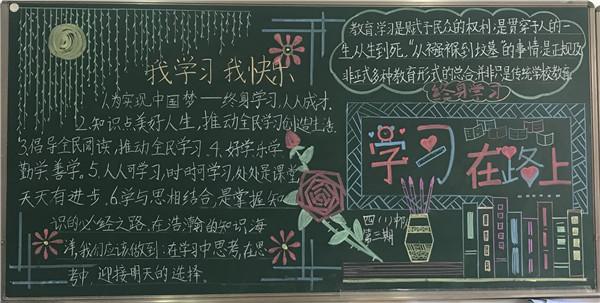 我学习 我快乐
1.为实现中国梦——终身学习,人人成才.
2.知识点美好人生,推动全民学习创造生活.
3.倡导全民阅读,推动全民学习.4.好学乐学
勤学善学.5.人人可学习,时时可学习,处处是课堂
天天有进步.6.学与思相结合,是掌握知
识的必经之路.在浩瀚的知识海
洋,我们应该做到:在学习中思考,在思
考中,迎接明天的选择.
教育,学习是赋于民众的权利;是贯穿于人的一
生从生到死.“从襁褓到坟墓”的事情;是正规及
非正式多种教育形式的总合,并非只是传统学校教育
终身学习
学习在路上
四(1)中队
第三期